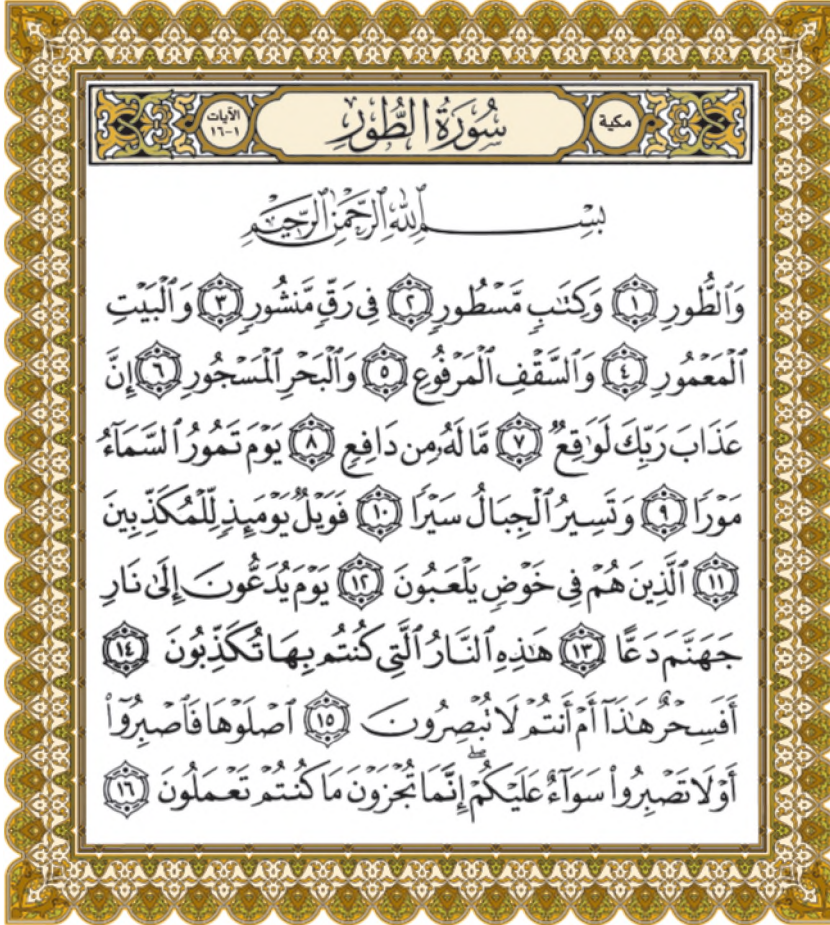 مكية
سُورَةُ الطُّورِ
الآيات
١-١٦
بِسْمِ ٱللَّهِ ٱلرَّحْمَٰنِ ٱلرَّحِيمِ
وَٱلطُّورِ ١ وَكِتَٰبٍ مَّسْطُورٍ ٢ فِى رَقٍّ مَّنشُورٍ ٣ وَٱلْبَيْتِ
ٱلْمَعْمُورِ ٤ وَٱلسَّقْفِ ٱلْمَرْفُوعِ ٥ وَٱلْبَحْرِ ٱلْمَسْجُورِ ٦ إِنَّ
عَذَابَ رَبِّكَ لَوَٰقِعٌ ٧ مَّا لَهُۥ مِن دَافِعٍ ٨ يَوْمَ تَمُورُ ٱلسَّمَآءُ
مَوْرًا ٩ وَتَسِيرُ ٱلْجِبَالُ سَيْرًا ١٠ فَوَيْلٌ يَوْمَئِذٍ لِّلْمُكَذِّبِينَ
١١ ٱلَّذِينَ هُمْ فِى خَوْضٍ يَلْعَبُونَ ١٢ يَوْمَ يُدَعُّونَ إِلَىٰ نَارِ
جَهَنَّمَ دَعًّا ١٣ هَٰذِهِ ٱلنَّارُ ٱلَّتِى كُنتُم بِهَا تُكَذِّبُونَ ١٤
أَفَسِحْرٌ هَٰذَآ أَمْ أَنتُمْ لَا تُبْصِرُونَ ١٥ ٱصْلَوْهَا فَٱصْبِرُوٓا۟
أَوْ لَا تَصْبِرُوا۟ سَوَآءٌ عَلَيْكُمْ ۖ إِنَّمَا تُجْزَوْنَ مَا كُنتُمْ تَعْمَلُونَ ١٦